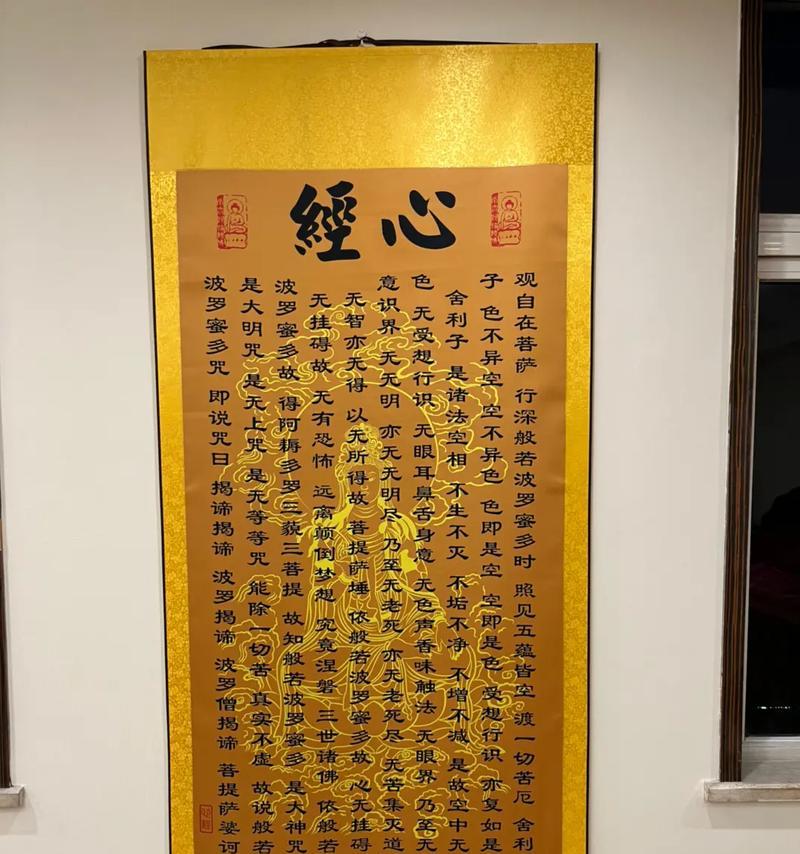 心經
观自在菩萨 行深般若波罗蜜多时 照见五蕴皆空 渡一切苦厄 舍利
子 色不异空 空不异色 色即是空 空即是色 受想行识 亦复如是
舍利子 是诸法空相 不生不灭 不垢不净 不增不减 是故空中无
色 无受想行识 无眼耳鼻舌身意 无色声香味触法 无眼界 乃至无
意识界 无无明 亦无无明尽 乃至无老死 亦无老死尽 无苦集灭道
无智亦无得 以无所得故 菩提萨埵 依般若波罗蜜多故 心无挂碍
无挂碍故 无有恐怖 远离颠倒梦想 究竟涅磐 三世诸佛 依般若
波罗蜜多故 得阿耨多罗三藐三菩提 故知般若波罗蜜多 是大神咒
是大明咒 是无上咒 是无等等咒 能除一切苦 真实不虚 故说般若
波罗蜜多咒 即说咒曰 揭谛揭谛 波罗揭谛 波罗僧揭谛 菩提萨婆诃